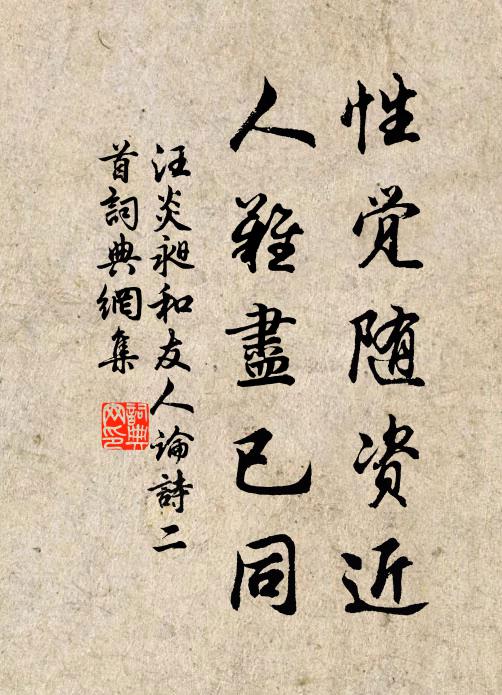 性觉随资近
人难盡已同
汪炎昶和友人論詩二
首詞典網集
詞典
网印